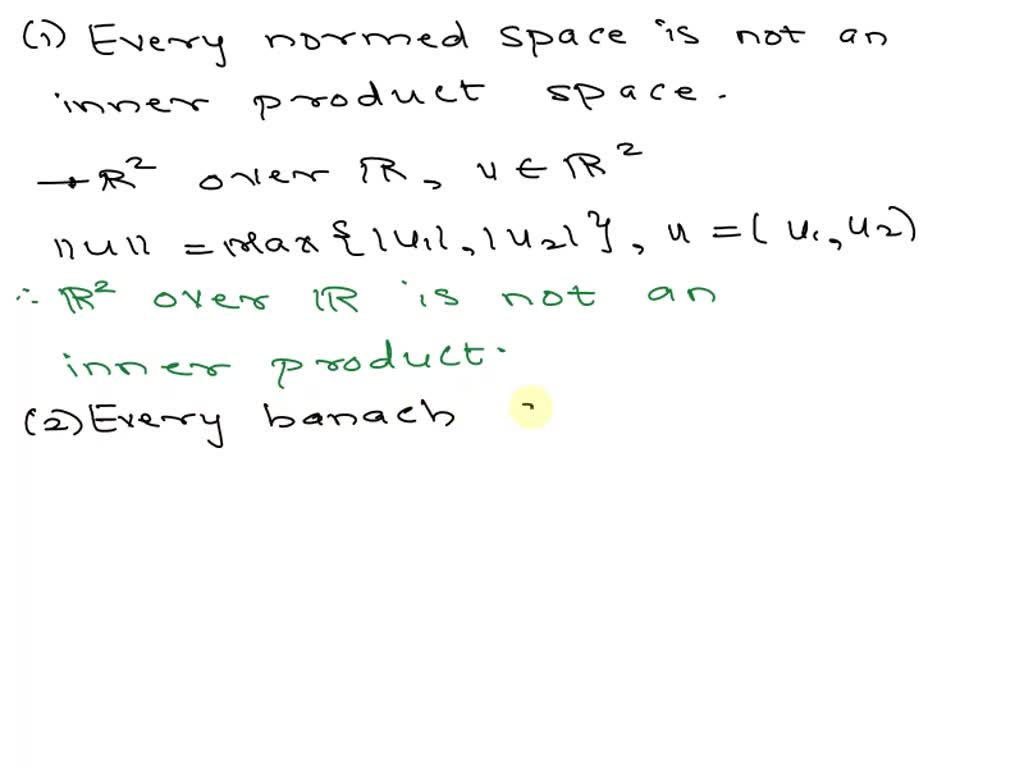 (1) Every normed space is not an
inner product space.
→ ℝ² over ℝ, u ∈ ℝ²
||u|| = max{|u₁|, |u₂|}, u = (u₁, u₂)
∴ ℝ² over ℝ is not an
inner product.
(2) Every banach